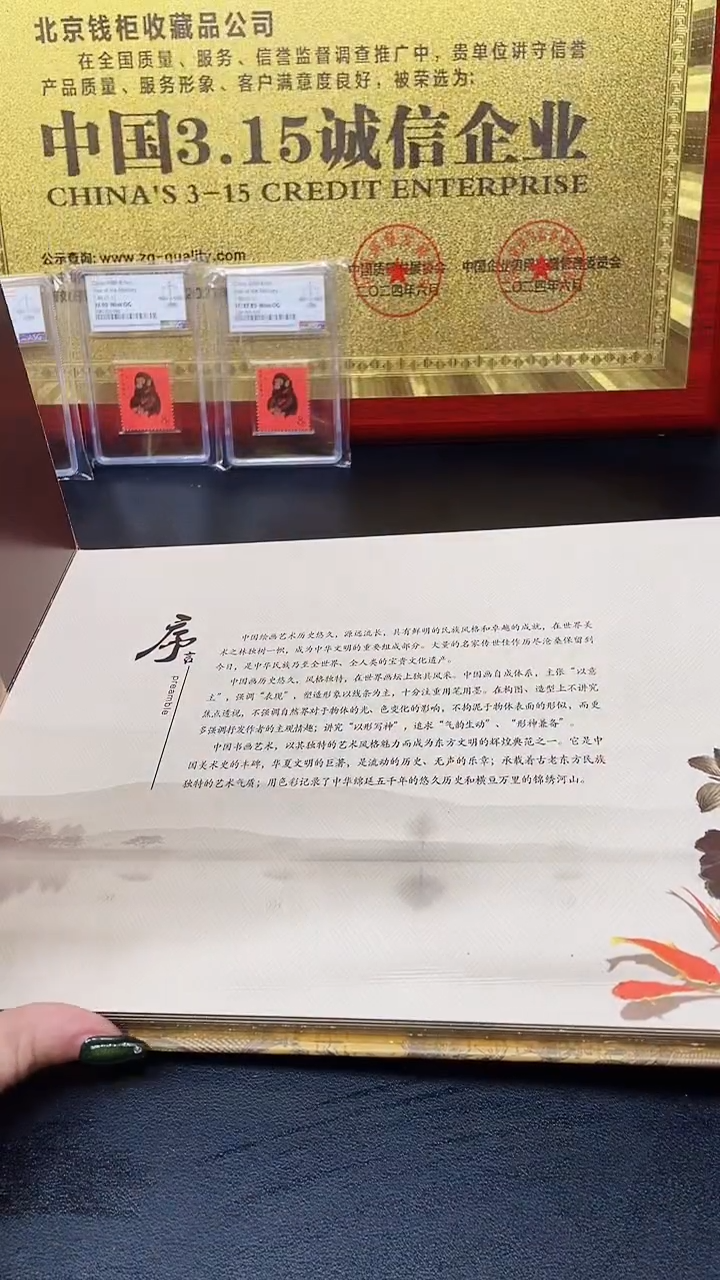 北京钱柜收藏品公司
在全国质量、服务、信誉监督调查推广中，贵单位讲守信誉
产品质量、服务形象、客户满意度良好，被荣选为：
中国3.15诚信企业
CHINA'S 3-15 CREDIT ENTERPRISE
公示查询：www.zg-quality.com
二〇二四年六月
二〇二四年六月
序言
preamble
中国绘画艺术历史悠久，源远流长，具有鲜明的民族风格和卓越的成就，在世界美
术之林独树一帜，成为中华文明的重要组成部分。大量的名家传世佳作历尽沧桑保留到
今日，是中华民族乃至全世界、全人类的宝贵文化遗产。
中国画历史悠久，风格独特，在世界画坛上独具风采。中国画自成体系，主张“以意
主”，强调“表现”，塑造形象以线条为主，十分注重用笔用墨。在构图、造型上不讲究
焦点透视，不强调自然界对于物体的光、色变化的影响，不拘泥于物体表面的形似，而更
多强调抒发作者的主观情趣；讲究“以形写神”，追求“气韵生动”、“形神兼备”。
中国书画艺术，以其独特的艺术风格魅力而成为东方文明的辉煌典范之一。它是中
国美术史的丰碑，华夏文明的巨著，是流动的历史、无声的乐章；承载着古老东方民族
独特的艺术气质；用色彩记录了中华绵延五千年的悠久历史和横亘万里的锦绣河山。